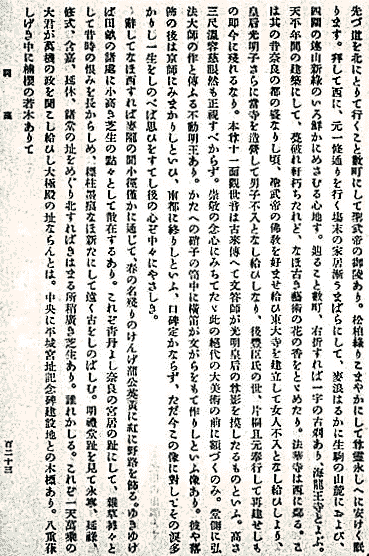 先づ道を北にとりて行くこと數町にして聖武帝の御陵あり。松柏綠りこまやかにして尊靈永しへに安けく眠
ります。拜して西に、元一條通りを行く場末の家居漸うまばらにして、麥浪はるかに生駒の山麓におよび、
四圍の連山新綠のいろ鮮かにめさむる心地す。辿ること數町、右折すれば一字の古刹あり、海龍王寺とよぶ。
天平年間の建築にして、甍破れ軒朽ちたれど、なほ古き藝術の花の香をとどめたり。法華寺は西に鄰る。こ
は其の昔奈良の都の盛なりし頃、聖武帝の佛敎を好ませ給ひ東大寺を建立して女人不入となし給ひしより、
皇后光明子さらに當寺を造營して男子不入となし給ひしなり、後豐臣氏の世、片桐且元奉行して再建せし
の卽今に殘れるなり。本尊十一面觀世音は古來傳へて文答師が光明皇后の尊影を摸したるものといふ。高さ
三尺溫容慈眼然も正視すべからず。崇敬の念心にみちてたゞ此の絕代の大美術の前に額づくのみ。堂側に弘
法大師の作と傳ふる不動明王あり。かたへの硝子の筒中に橫笛が文がらをもて作りしといふ像あり。彼や落
飾の後は京師にみまかりしといひ、南都に終りしといふ、口碑定かならず、ただ今この像に對してその淚多
かりし一生をしのべば思ひをすてし後の心ぞ中々にやさしき。
辭してなほ西すれば麥隴の間小徑僅かに通じて、春の名殘りのげんげ蒲公英黃に紅に野路を飾る。ゆきゆけ
ば田畝の諸處に小高き芝生の點々として散在するあり。これぞ靑丹よし奈良の宮居の趾にして、雜草離々と
して昔時の恨みを長からしめ、標柱墨痕なほ新たにして遠く古をしのばしむ。明禮堂趾を見て永寧、延祿、
修式、含嘉、延休、諸堂の址をめぐり北すればきはまる所稍廣き芝生あり。誰れかしる。これぞ一天萬乘の
大君が萬機の政を聞こし給ひし大極殿の址ならんとは。中央に平城宮址記念碑建設地との木標あり。八重葎
しげき中に楠樹の若木ありて
百二十三